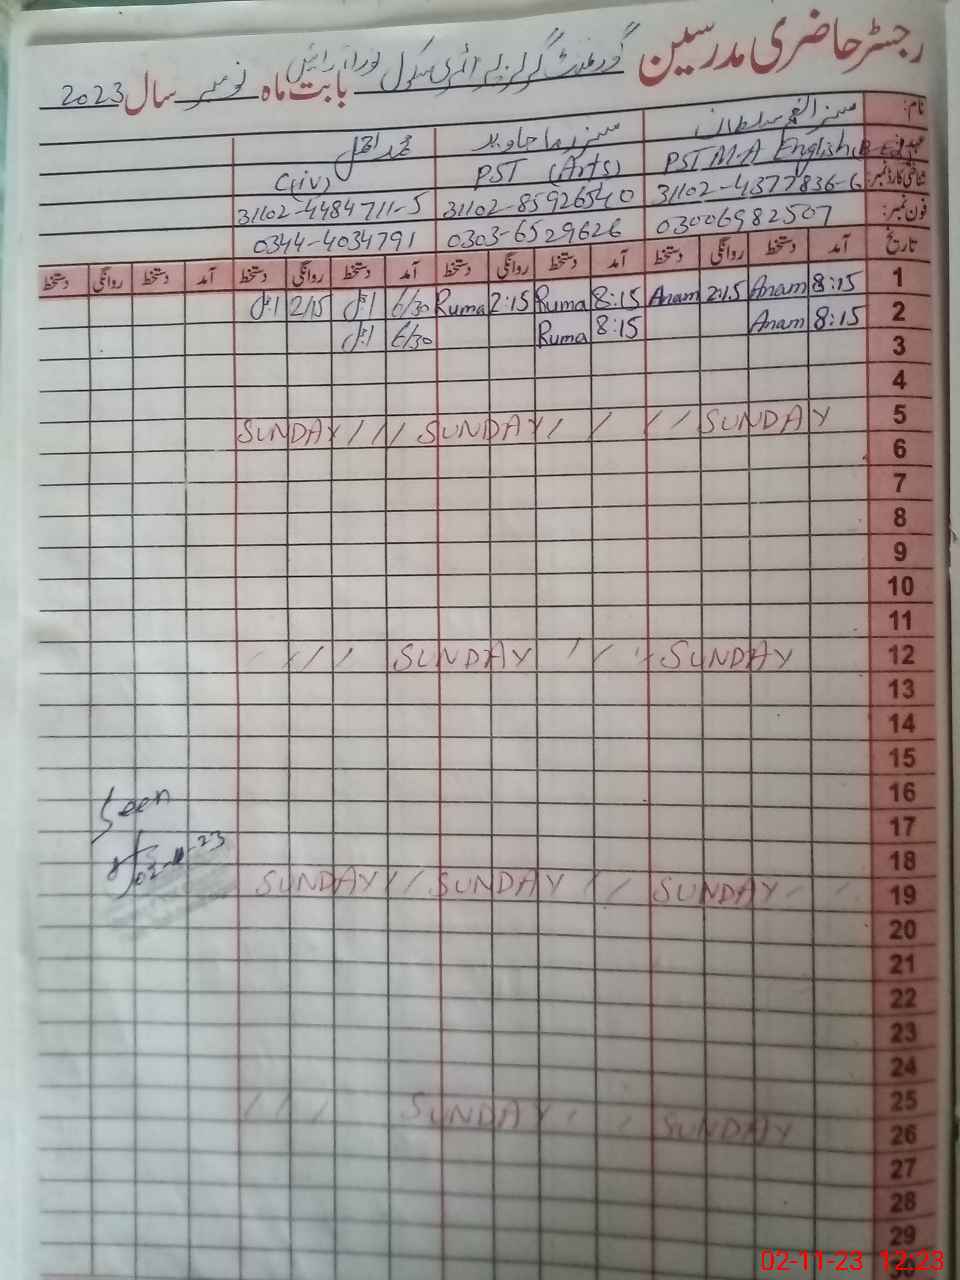 رجسٹر حاضری مدرسین گورنمنٹ گرلز پرائمری سکول نورا ارائیں بابت ماہ نومبر سال 2023
نام: مسز انعم سلطان مسز رما جاوید
PST M.A English, B.Ed PST (Arts) C(iv)
شناختی کارڈ نمبر: 31102-4377836-6 31102-8592654-0 31102-4484711-5
فون نمبر: 03006982507 0303-6529626 0344-4034791
تاریخ آمد دستخط روانگی دستخط آمد دستخط روانگی دستخط آمد دستخط روانگی دستخط آمد دستخط روانگی دستخط
1 8:15 Anam 2:15 Anam 8:15 Ruma 2:15 Ruma 6/30 2/15
2 8:15 Anam 8:15 Ruma 6/30
3
4
5 SUNDAY SUNDAY SUNDAY
6
7
8
9
10
11
12 SUNDAY SUNDAY
13
14
15
16
Seen
17
18
02-11-23
19 SUNDAY SUNDAY SUNDAY
20
21
22
23
24
25
26 SUNDAY SUNDAY
27
28
29
02-11-23 12:23